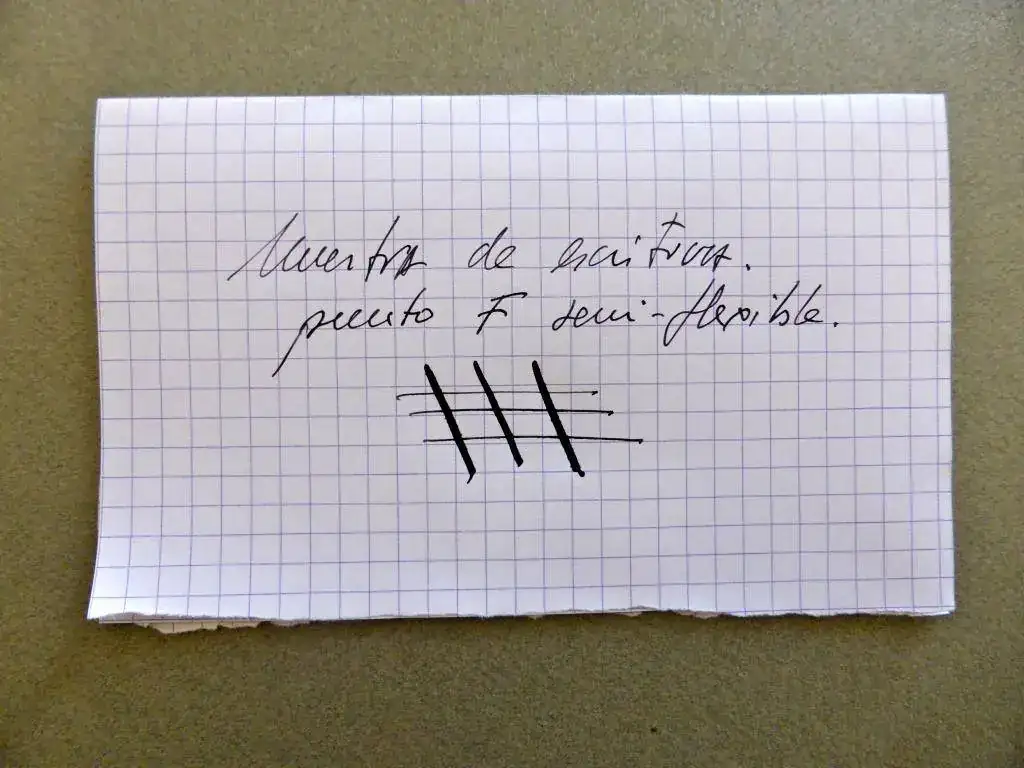 Muestra de escritura.
punto F semi-flexible.